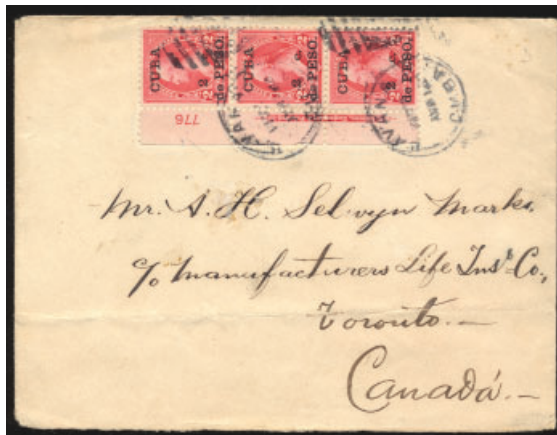 CUBA
2 c.
de PESO.
CUBA
2 c.
de PESO.
CUBA
2 c.
de PESO.
776
HAVANA
HAVANA CUBA
Mr. A. H. Selwyn Marks.
c/o Manufacturers Life Insce Co.,
Toronto.—
Canadá.—